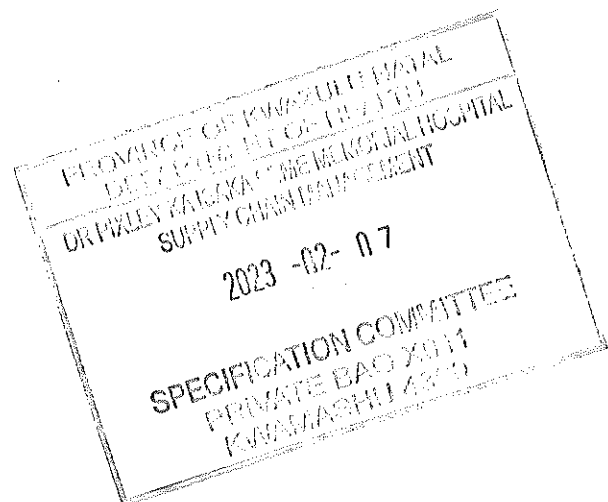 PROVINCE OF KWAZULU NATAL
DEPARTMENT OF HEALTH
DR PIXLEY KA ISAKA SEME MEMORIAL HOSPITAL
SUPPLY CHAIN MANAGEMENT
2023 -02- 07
SPECIFICATION COMMITTEE
PRIVATE BAG
KWAMASHU